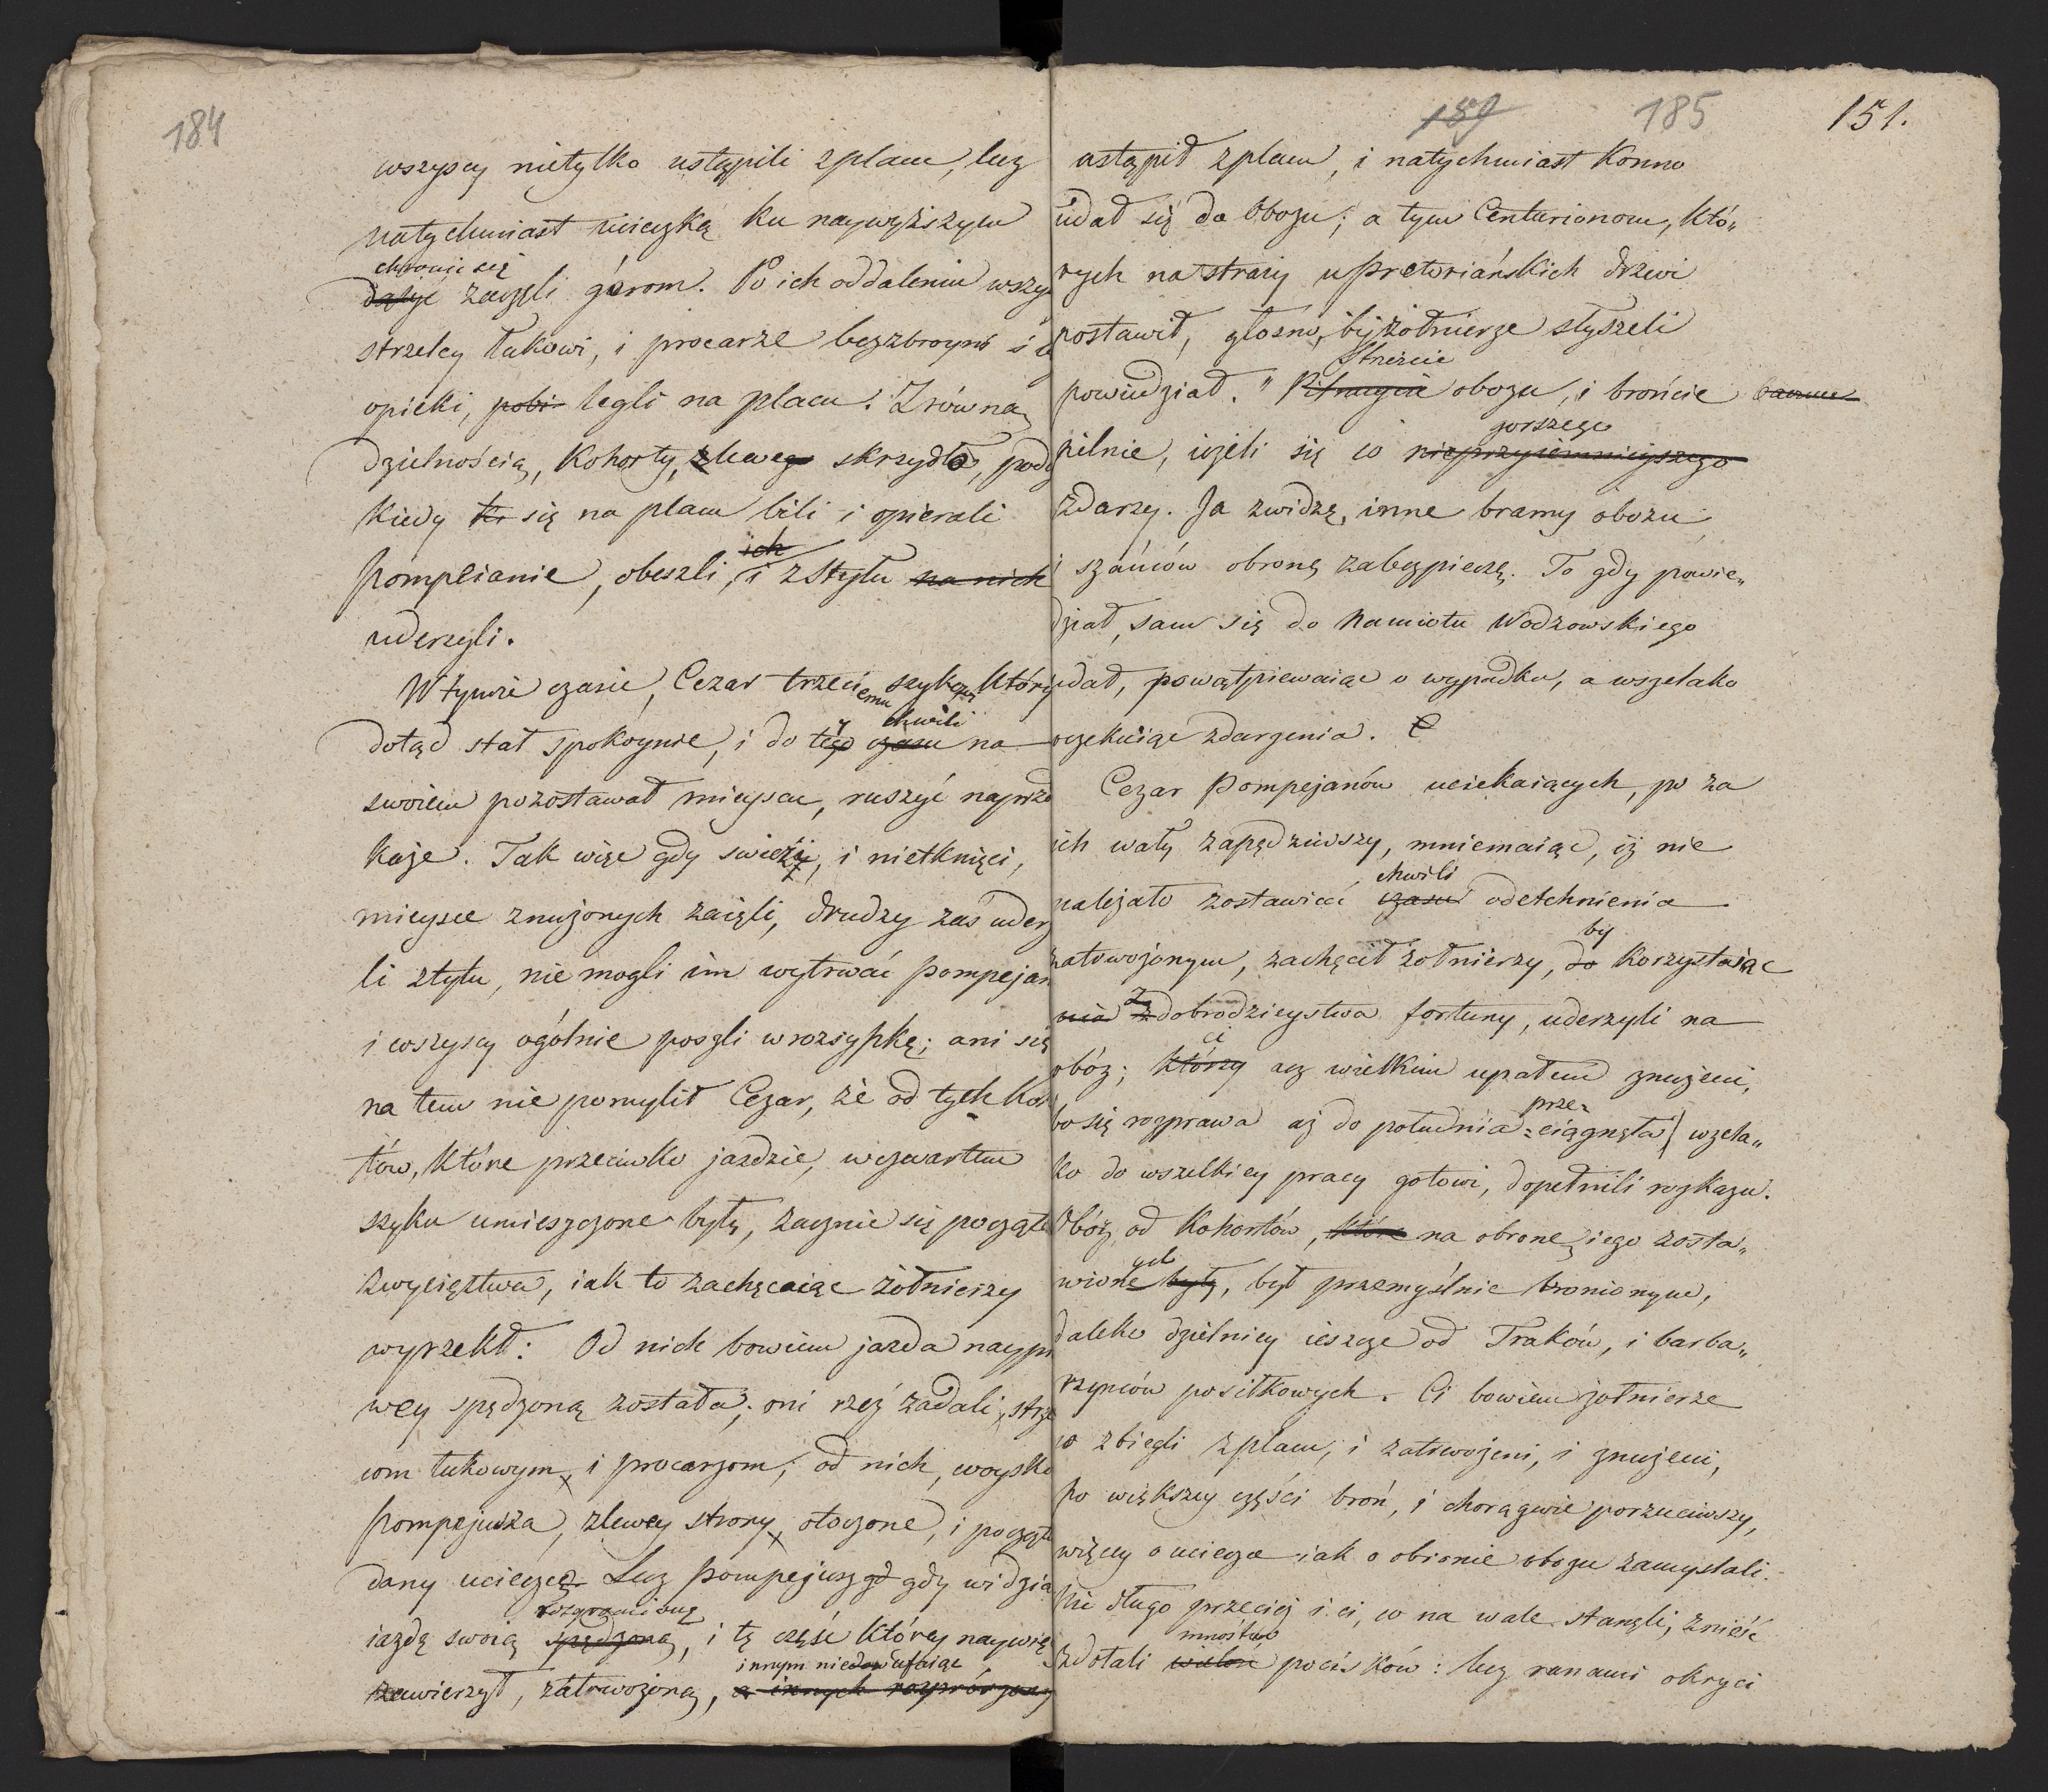 184
wszyscy nietylko ustąpili z placu, lecz
natychmiast ucieczką ku naywyższym
chronić się
dążyć zaczęli górom. Po ich oddaleniu wszy
strzelcy łukowi, i procarze bezbroyni i
opieki, pobi legli na placu. Z równą
dzielnością, Kohorty, z lewego skrzydła,
kiedy się na placu bili i opierali
ich
Pompeianie, obeszli, i z tyłu na nich
uderzyli.
W tymże czasie, Cezar trzeciemu szykowi, który
chwili
dotąd stał spokoynie, i do tego czasu na
swoiem pozostawał mieyscu, ruszyć naprzó
każe. Tak więc gdy świeży, i nietknięci,
mieysce znużonych zaięli, drudzy zaś uderzy
li z tyłu, nie mogli im wytrwać Pompejan
i wszyscy ogólnie poszli w rozsypkę; ani się
na tem nie pomylił Cezar, że od tych Kohor
tów, które przeciwko jazdzie, w czwartem
szyku umieszczone były, zacznie się początek
zwycięztwa, iak to zachęcaiąc żołnierzy
wyrzekł: Od nich bowiem jazda nayprz
wey spędzoną została; oni rzeź zadali, strzel
com łukowym, i procarzom; od nich, woysko
Pompejusza, z lewey strony otoczone, i począte
dany ucieczce. Lecz Pompejusz gd gdy widzia
rozgromioną
iazdę swoią spędzoną, i tę część którey naywię
innym niedowierzaiąc
zawierzył, zatrwożoną, a innych
189 185 151.
ustąpił z placu, i natychmiast konno
udał się do Obozu; a tym Centurionom, któ„
rych na straży u Pretoriańskich drzwi
postawił, głośno, by żołnierze słyszeli
Strzeżcie
powiedział. " Pilnuycie obozu, i brońcie
gorszego
pilnie, ieżeli się co nieprzyiemnieyszego
zdarzy. Ja zwidzę, inne bramy obozu
i szańców obronę zabezpieczę. To gdy powie„
dział, sam się do Namiotu Wodzowskiego
udał, powątpiewaiąc o wypadku, a wszelako
oczekuiąc zdarzenia. C
Cezar Pompejanów uciekaiących, po za
ich wały zapędziwszy, mniemaiąc, iż nie
chwili
należało zostawiać czasu odetchnienia
by
zatrwożonym, zachęcił żołnierzy, do korzystaiąc
nia z dobrodzieystwa fortuny, uderzyli na
ci
obóz; którzy acz wielkim upałem znużeni,
prze„
bo się rozprawa aż do południa ciągnęła) wszela„
ko do wszelkiey pracy gotowi, dopełnili rozkazu.
Obóz, od Kohortów, które na obronę iego zosta„
ych
wione były, był przemyślnie bronionym,
daleko dzielniey ieszcze od Traków, i barba„
rzyńców posiłkowych. Ci bowiem żołnierze
co zbiegli z placu, i zatrwożeni, i znużeni,
po większey części broń, i chorągwie porzuciwszy,
więcey o ucieczce iak o obronie obozu zamyślali.
Nie długo przecież i ci, co na wale stanęli, znieść
mnóstwo
zdołali wielość pocisków: lecz ranami okryci